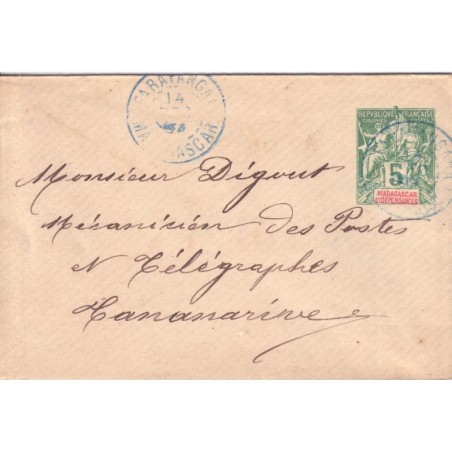 14
MADAGASCAR
REPUBLIQUE FRANÇAISE
COLONIES POSTES
5
MADAGASCAR
ET DÉPENDANCES
Monsieur Dégout
Mécanicien des Postes
et Télégraphes
Tananarive